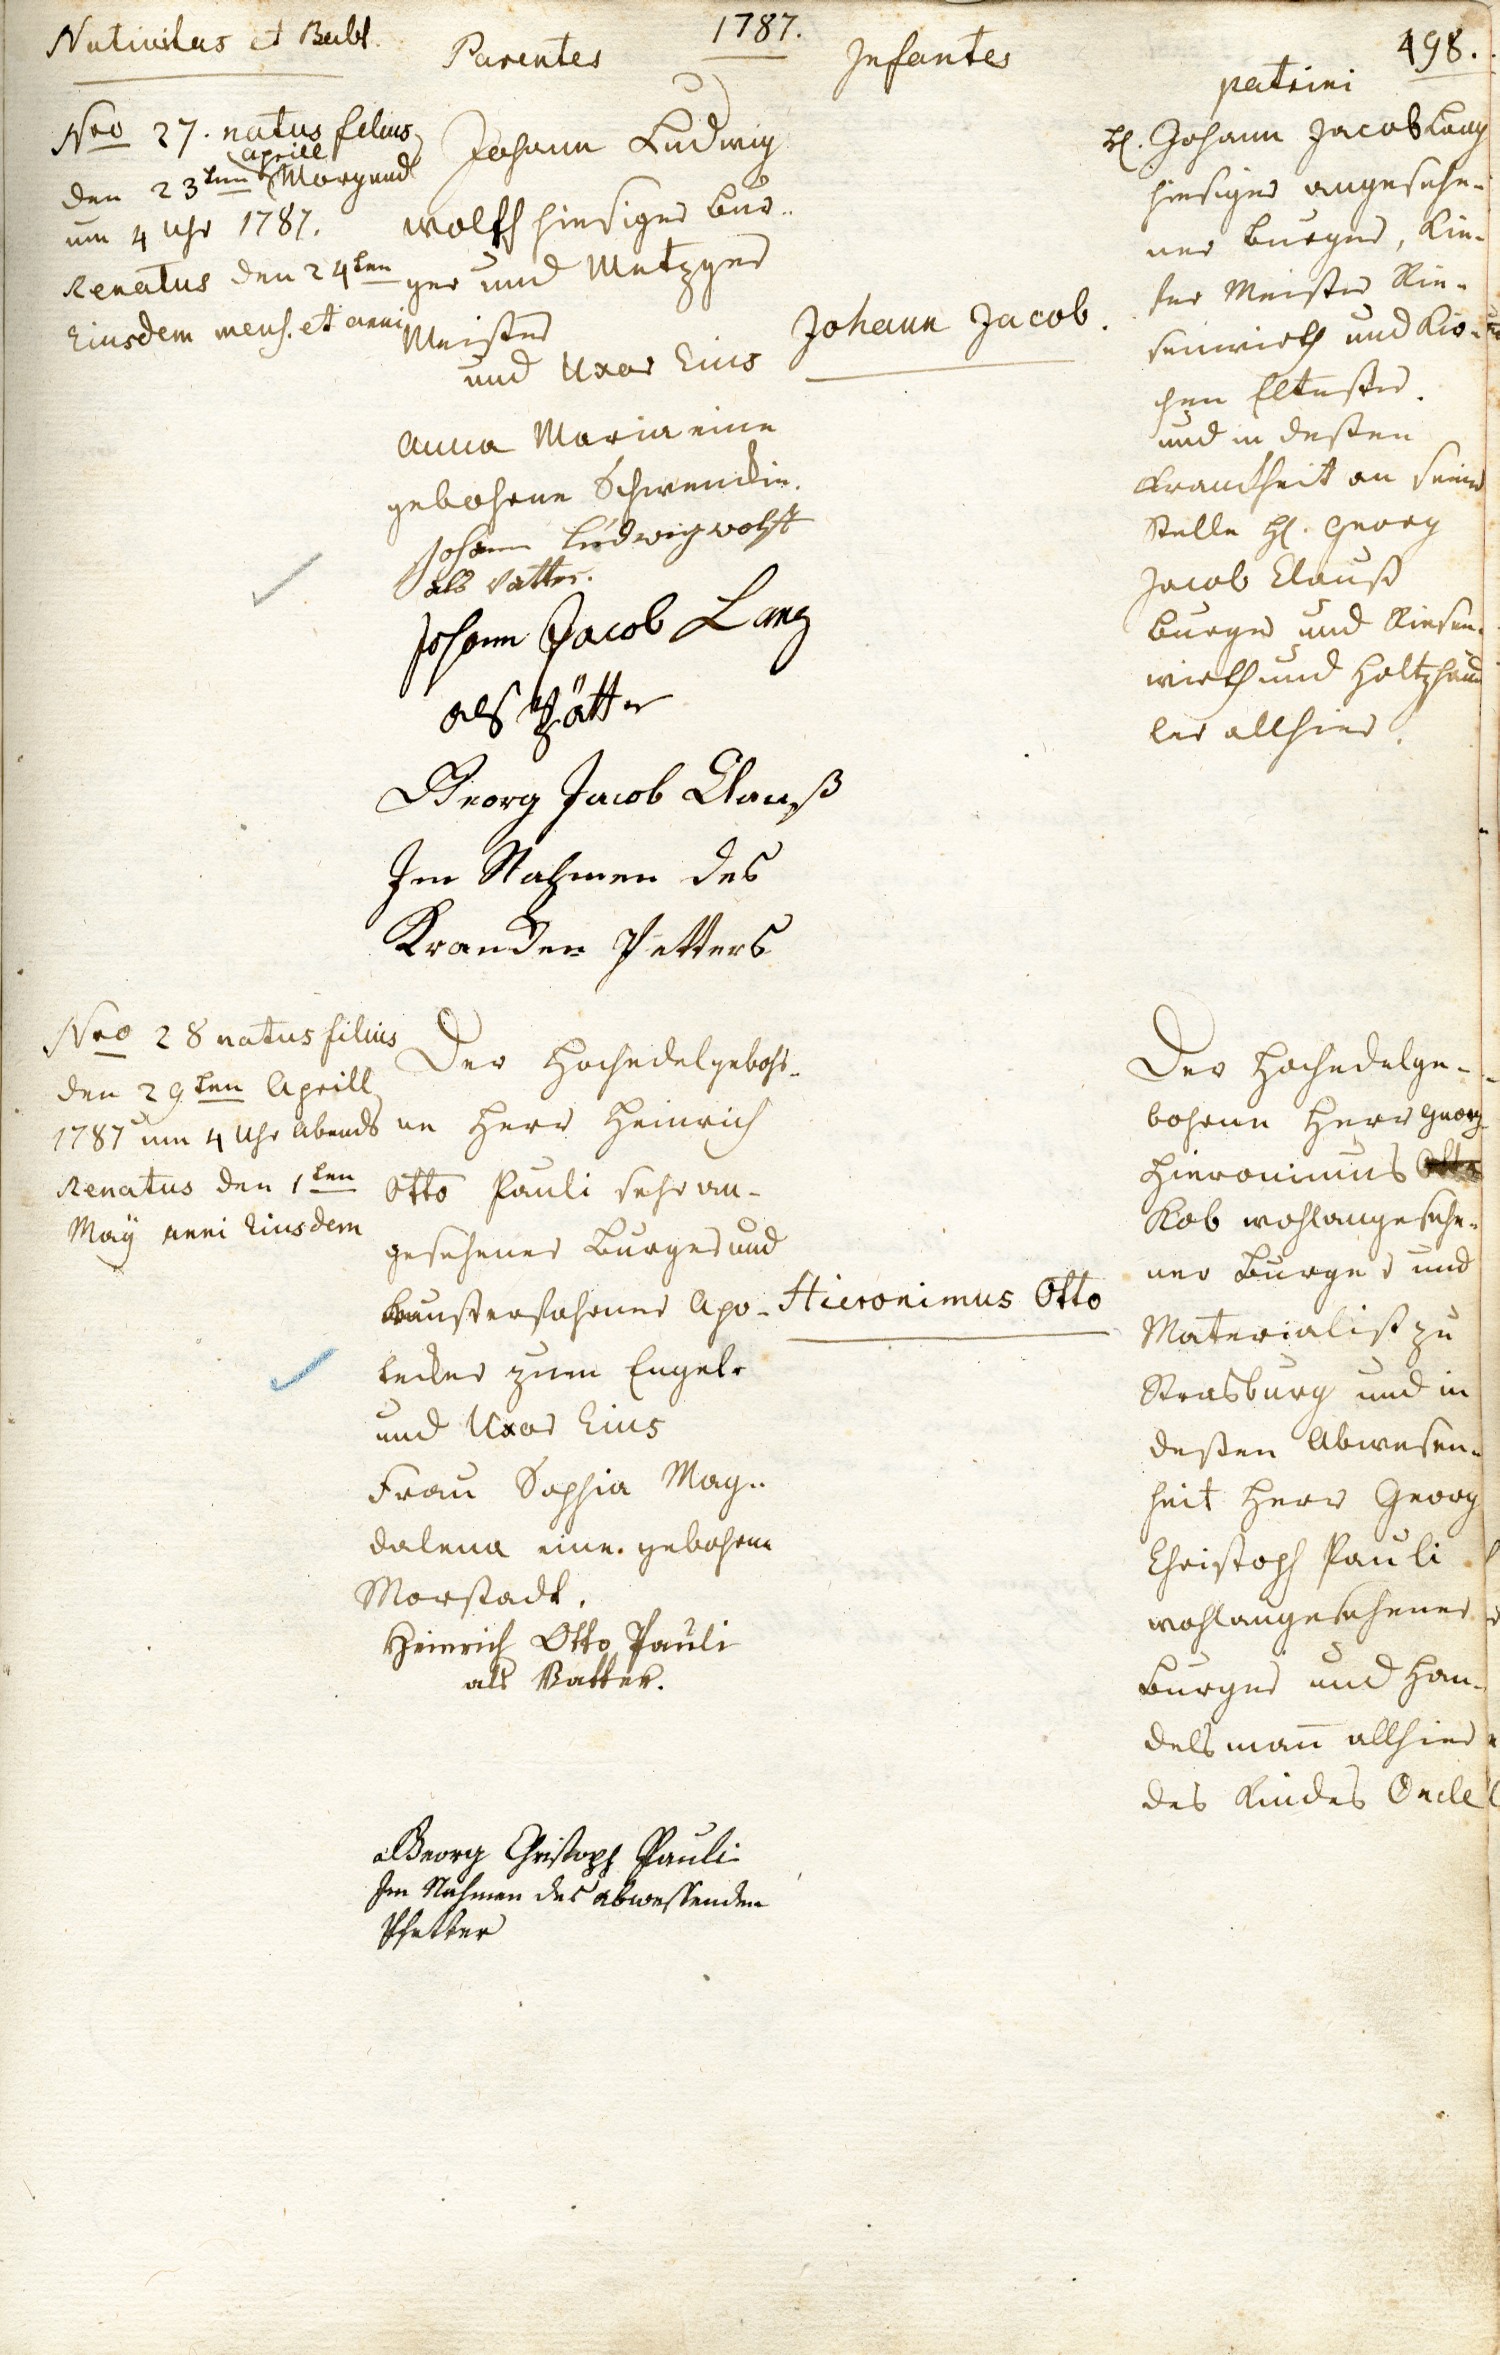 1787.
498.
Nativitas et Babt.
Parentes
Infantes
patrini
Nro 27. natus filius
aprill
den 23ten Morgends
um 4 Uhr 1787.
Renatus den 24ten
Eiusdem mens. et anni
Johann Ludwig
wolff hiesiger Bur-
ger und Metzger
Meister
und Uxor Eius
Anna Maria eine
gebohrne Schwendin.
Johann Ludwig wolff
als vatter.
Johann Jacob Lang
als Pfätter
Georg Jacob Clauß
Im Nahmen des
Krancken Petters
Johann Jacob.
H. Johann Jacob Lang
hiesiger angesehe-
ner Burger, Kie-
fer Meister Rie-
senwirth und Kir-
chen Eltester.
und in dessen
Kranckheit an seiner
Stelle H. Georg
Jacob Clauß
Burger und Riesen-
wirth und Holtzhänd
ler allhier.
Nro 28 natus filius
den 29ten Aprill
1787 um 4 Uhr Abends
Renatus den 1ten
Maÿ anni Eiusdem
Der Hochedelgebohr-
ne Herr Heinrich
Otto Pauli sehr an-
gesehener Burger und
Kunsterfahrner Apo-
tecker zum Engel.
und Uxor Eius
Frau Sophia Mag-
dalena eine gebohrne
Morstadt.
Heinrich Otto Pauli
als Vatter.
Georg Christoph Pauli
Im Nahmen des abwessenden
Pfetter
Hieronimus Otto
Der Hochedelge-
bohrne Herr Georg
Hieronimus
Kob wohlangesehe-
ner Burger und
Materialist zu
Strasburg und in
dessen Abwesen-
heit Herr Georg
Christoph Pauli
wohlangesehener
Burger und Han-
delsmañ allhier
des Kindes Oncle